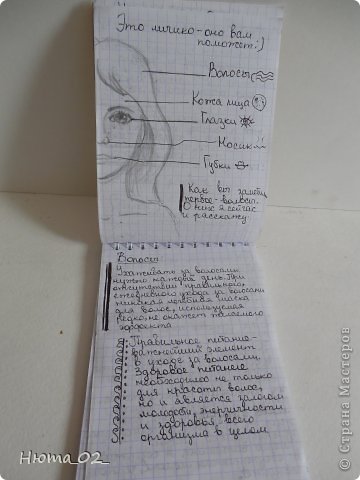 Это личико-оно вам
поможет:)
Волосы
Кожа лица
Глазки
Носик
Губки
Как вы заметили
первое-волосы.
О них я сейчас
и расскажу.
Волосы
Ухаживать за волосами
нужно каждый день. При
отсутствии правильного,
ежедневного ухода за волосами
никакая лечебная маска
для волос, используемая
редко, не окажет желаемого
эффекта
Правильное питание-
важнейший элемент
в уходе за волосами.
Здоровое питание
необходимо не только
для красоты волос,
но и является залогом
молодости, энергичности
и здоровья всего
организма в целом
Нюта_02_
© Страна Мастеров